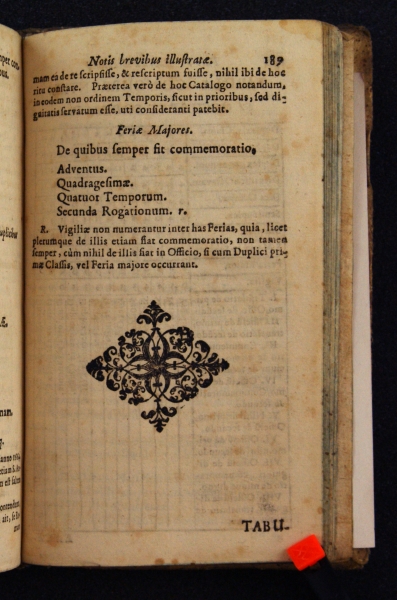 Notis brevibus illustratæ. 189
mam ea de re scripsisse, & rescriptum fuisse, nihil ibi de hoc
ritu constare. Præterea verò de hoc Catalogo notandum,
in eodem non ordinem Temporis, sicut in prioribus, sed di-
gnitatis servatum esse, uti consideranti patebit.
Feriæ Majores.
De quibus semper fit commemoratio.
Adventus.
Quadragesimæ.
Quatuor Temporum.
Secunda Rogationum. r.
R. Vigiliæ non numerantur inter has Ferias, quia, licet
plerumque de illis etiam fiat commemoratio, non tamen
semper, cùm nihil de illis fiat in Officio, si cum Duplici pri-
mæ Classis, vel Feria majore occurrant.
TABU-